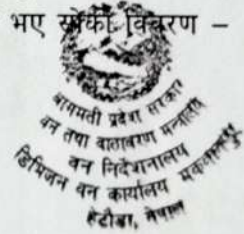 भए सोको विवरण –
बागमती प्रदेश सरकार
वन तथा वातावरण मन्त्रालय
वन निर्देशनालय
डिभिजन वन कार्यालय मकवानपुर
हेटौंडा, नेपाल